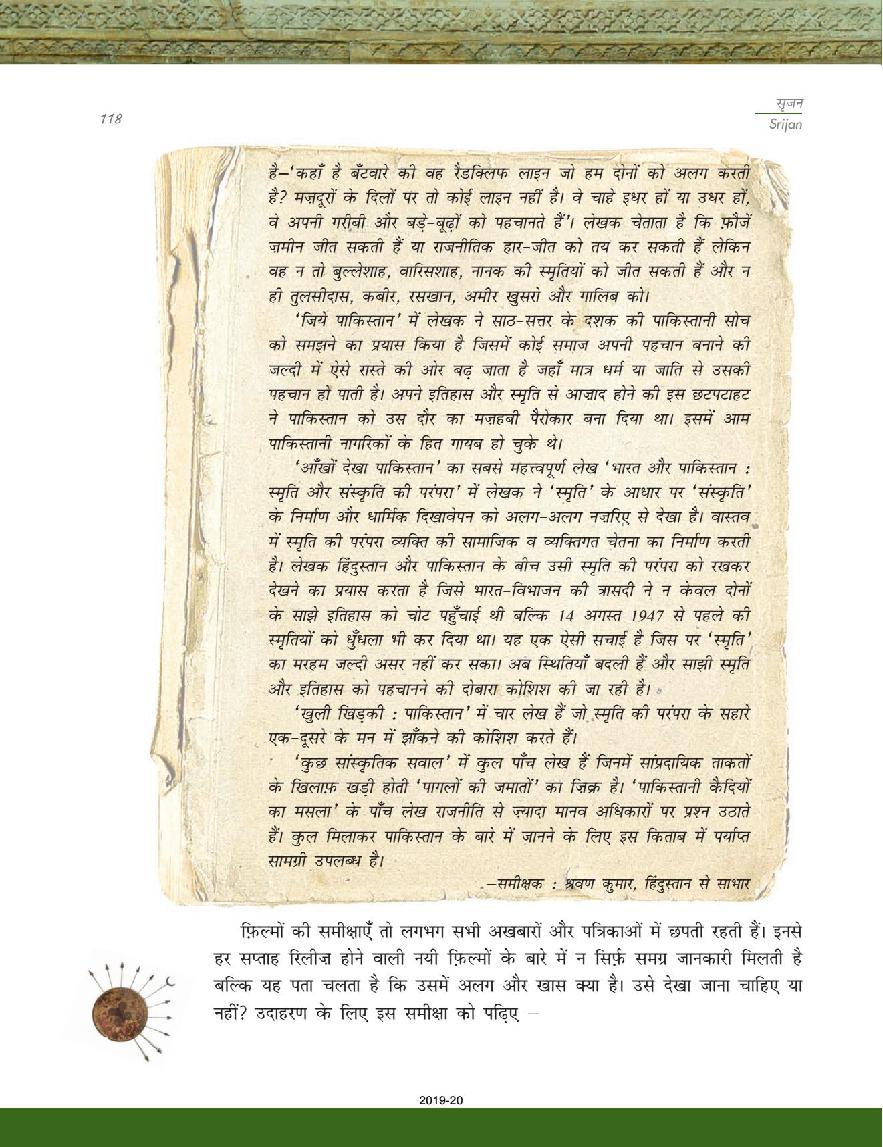 118
सृजन
Srijan
है–‘कहाँ है बँटवारे की वह रैडक्लिफ लाइन जो हम दोनों को अलग करती
है? मज़दूरों के दिलों पर तो कोई लाइन नहीं है। वे चाहे इधर हों या उधर हों,
वे अपनी गरीबी और बड़े-बूढ़ों को पहचानते हैं’। लेखक चेताता है कि फ़ौजें
ज़मीन जीत सकती हैं या राजनीतिक हार-जीत को तय कर सकती हैं लेकिन
वह न तो बुल्लेशाह, वारिसशाह, नानक की स्मृतियों को जीत सकती हैं और न
ही तुलसीदास, कबीर, रसखान, अमीर खुसरो और गालिब को।
‘जिये पाकिस्तान’ में लेखक ने साठ-सत्तर के दशक की पाकिस्तानी सोच
को समझने का प्रयास किया है जिसमें कोई समाज अपनी पहचान बनाने की
जल्दी में ऐसे रास्ते की ओर बढ़ जाता है जहाँ मात्र धर्म या जाति से उसकी
पहचान हो पाती है। अपने इतिहास और स्मृति से आज़ाद होने की इस छटपटाहट
ने पाकिस्तान को उस दौर का मज़हबी पैरोकार बना दिया था। इसमें आम
पाकिस्तानी नागरिकों के हित गायब हो चुके थे।
‘आँखों देखा पाकिस्तान’ का सबसे महत्त्वपूर्ण लेख ‘भारत और पाकिस्तान :
स्मृति और संस्कृति की परंपरा’ में लेखक ने ‘स्मृति’ के आधार पर ‘संस्कृति’
के निर्माण और धार्मिक दिखावेपन को अलग-अलग नज़रिए से देखा है। वास्तव
में स्मृति की परंपरा व्यक्ति की सामाजिक व व्यक्तिगत चेतना का निर्माण करती
है। लेखक हिंदुस्तान और पाकिस्तान के बीच उसी स्मृति की परंपरा को रखकर
देखने का प्रयास करता है जिसे भारत-विभाजन की त्रासदी ने न केवल दोनों
के साझे इतिहास को चोट पहुँचाई थी बल्कि 14 अगस्त 1947 से पहले की
स्मृतियों को धुँधला भी कर दिया था। यह एक ऐसी सचाई है जिस पर ‘स्मृति’
का मरहम जल्दी असर नहीं कर सका। अब स्थितियाँ बदली हैं और साझी स्मृति
और इतिहास को पहचानने की दोबारा कोशिश की जा रही है।
‘खुली खिड़की : पाकिस्तान’ में चार लेख हैं जो स्मृति की परंपरा के सहारे
एक-दूसरे के मन में झाँकने की कोशिश करते हैं।
‘कुछ सांस्कृतिक सवाल’ में कुल पाँच लेख हैं जिनमें सांप्रदायिक ताकतों
के खिलाफ़ खड़ी होती ‘पागलों की जमातों’ का ज़िक्र है। ‘पाकिस्तानी कैदियों
का मसला’ के पाँच लेख राजनीति से ज़्यादा मानव अधिकारों पर प्रश्न उठाते
हैं। कुल मिलाकर पाकिस्तान के बारे में जानने के लिए इस किताब में पर्याप्त
सामग्री उपलब्ध है।
–समीक्षक : श्रवण कुमार, हिंदुस्तान से साभार
फ़िल्मों की समीक्षाएँ तो लगभग सभी अखबारों और पत्रिकाओं में छपती रहती हैं। इनसे
हर सप्ताह रिलीज़ होने वाली नयी फ़िल्मों के बारे में न सिर्फ़ समग्र जानकारी मिलती है
बल्कि यह पता चलता है कि उसमें अलग और खास क्या है। उसे देखा जाना चाहिए या
नहीं? उदाहरण के लिए इस समीक्षा को पढ़िए –
2019-20